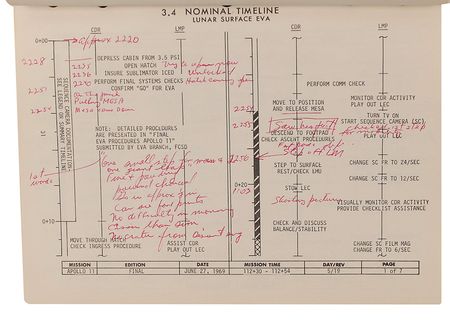 3.4 NOMINAL TIMELINE
LUNAR SURFACE EVA
CDR
LMP
CDR
LMP
0+00
approx 2220
2228
DEPRESS CABIN FROM 3.5 PSI
2235
OPEN HATCH
2236
INSURE SUBLIMATOR ICED
2240
PERFORM FINAL SYSTEMS CHECKS
CONFIRM "GO" FOR EVA
2251
On the porch
Pulling MESA
2254
Mesa came down
SEQUENCE CAMERA DOCUMENTATION
(SEE LEGEND ON SUMMARY TIMELINE)
NOTE: DETAILED PROCEDURES
ARE PRESENTED IN "FINAL
EVA PROCEDURES APOLLO 11"
SUBMITTED BY EVA BRANCH, FCSD
1st
words
One small step for man
one giant leap
Fine & powdery
powdered charcoal
in approx
Can see foot prints
No difficulty in moving
easier than sim
No crater from descent eng
0+10
MOVE THROUGH HATCH
CHECK INGRESS PROCEDURE
ASSIST CDR
PLAY OUT LEC
PERFORM COMM CHECK
MOVE TO POSITION
AND RELEASE MESA
MONITOR CDR ACTIVITY
PLAY OUT LEC
TURN TV ON
START SEQUENCE CAMERA (SC)
DESCEND TO FOOTPAD
CHECK ASCENT PROCEDURES
PLAY OUT LEC
2256
STEP TO SURFACE
REST/CHECK EMU
CHANGE SC FR TO 24/SEC
CHANGE SC FR TO 12/SEC
0+20
STOW LEC
Shooting pictures
VISUALLY MONITOR CDR ACTIVITY
PROVIDE CHECKLIST ASSISTANCE
CHECK AND DISCUSS
BALANCE/STABILITY
CHANGE SC FILM MAG
CHANGE FR TO 6/SEC
MISSION
EDITION
DATE
MISSION TIME
DAY/REV
PAGE
APOLLO 11
FINAL
JUNE 27, 1969
112+30 - 112+54
5/19
1 of 7